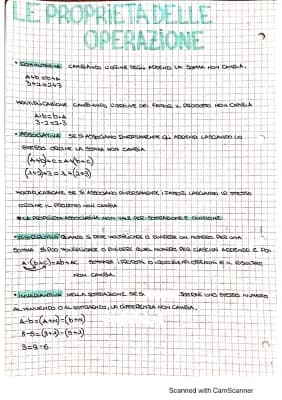 LE PROPRIETÀ DELLE
OPERAZIONE
• COMMUTATIVA CAMBIANDO L'ORDINE DEGLI ADDENDI LA SOMMA NON CAMBIA.
A+b=b+A
3+2=2+3
MOLTIPLICAZIONE CAMBIANDO L'ORDINE DEI FATTORI IL PRODOTTO NON CAMBIA
A·b=b·A
3·2=2·3
• ASSOCIATIVA SE SI ASSOCIANO DIVERSAMENTE GLI ADDENDI LASCIANDO LO
STESSO ORDINE LA SOMMA NON CAMBIA
(A+b)+c=A+(b+c)
MOLTIPLICAZIONE SE SI ASSOCIANO DIVERSAMENTE I FATTORI LASCIANDO LO STESSO
ORDINE IL PRODOTTO NON CAMBIA
LA PROPRIETÀ ASSOCIATIVA NON VALE PER SOTTRAZIONE E DIVISIONE
• DISTRIBUTIVA QUANDO SI DEVE MOLTIPLICARE O DIVIDERE UN NUMERO PER UNA
SOMMA SI PUÒ MOLTIPLICARE O DIVIDERE QUEL NUMERO PER CIASCUN ADDENDO E POI
A·(b+c)=Ab+Ac SOMMARE I PRODOTTI O I QUOZIENTI OTTENUTI E IL RISULTATO
NON CAMBIA.
• INVARIANTIVA NELLA SOTTRAZIONE SE SI UNO STESSO NUMERO
AL MINUENDO O AL SOTTRAENDO, LA DIFFERENZA NON CAMBIA.
3=8-5
Scanned with CamScanner